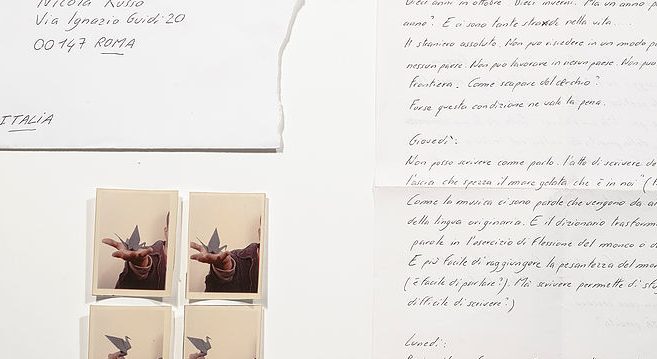 Nicola Russo
Via Ignazio Guidi 20
00147 ROMA
ITALIA
Dieci anni in ottobre. Dieci inverni. Ma un anno p
anno". E ci sono tante strade nella vita.....
Il straniero assoluto. Non può risiedere in un modo p
nessun paese. Non può lavorare in nessun paese. Non può
frontiera. Come scapare dal cerchio?
Forse questa condizione ne vale la pena.
Giovedì:
Non posso scrivere come parlo. l'atto di scrivere de
l'ascia che spezza il mare gelato che è in noi" (
Come la musica ci sono parole che vengono da
della lingua originaria. E il dizionario trasform
parole in l'esercizio di flessione del monco o d
E più facile di raggiungere la pesantezza del mon
(è facile di parlare?). Mai scrivere permette di
difficile di scrivere?)
Lunedì: